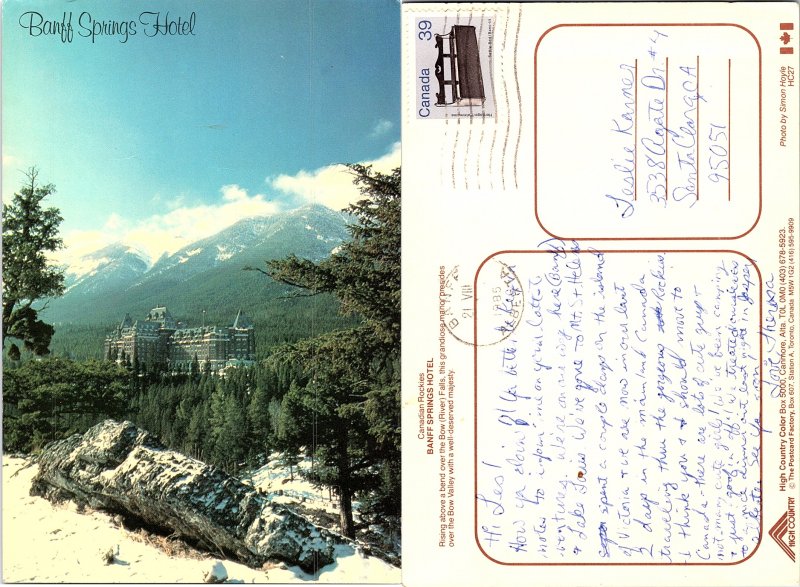 Banff Springs Hotel
Canada 39
BANFF
21 VIII
1985
Leslie Kanner
3538 Agate Dr #4
Santa Clara, CA
95051
Canadian Rockies
BANFF SPRINGS HOTEL
Rising above a bend over the Bow (River) Falls, this grandiose manor presides
over the Bow Valley with a well-deserved majesty.
Hi Les!
How ya doin?
notes to inform
venturing. We're on our way here (Banff)
& Lake Louise. We've gone to Mt. St. Helens
spent a couple of days on the island
of Victoria & we are now in our last
2 days in the mainland Canada
traveling thru the gorgeous Rockies.
I think you & I should move to
Canada there are lots of cute guys &
not many cute girls! We've been camping
& just goofing off. We treated ourselves
to dinner
See ya soon,
Love Theresa
High Country Color Box 5000, Canmore, Alta T0L 0M0 (403) 678-5923.
© The Postcard Factory, Box 607, Station A, Toronto, Canada M5W 1G2 (416) 595-9909
HIGH COUNTRY
Photo by Simon Hoyle
HC27